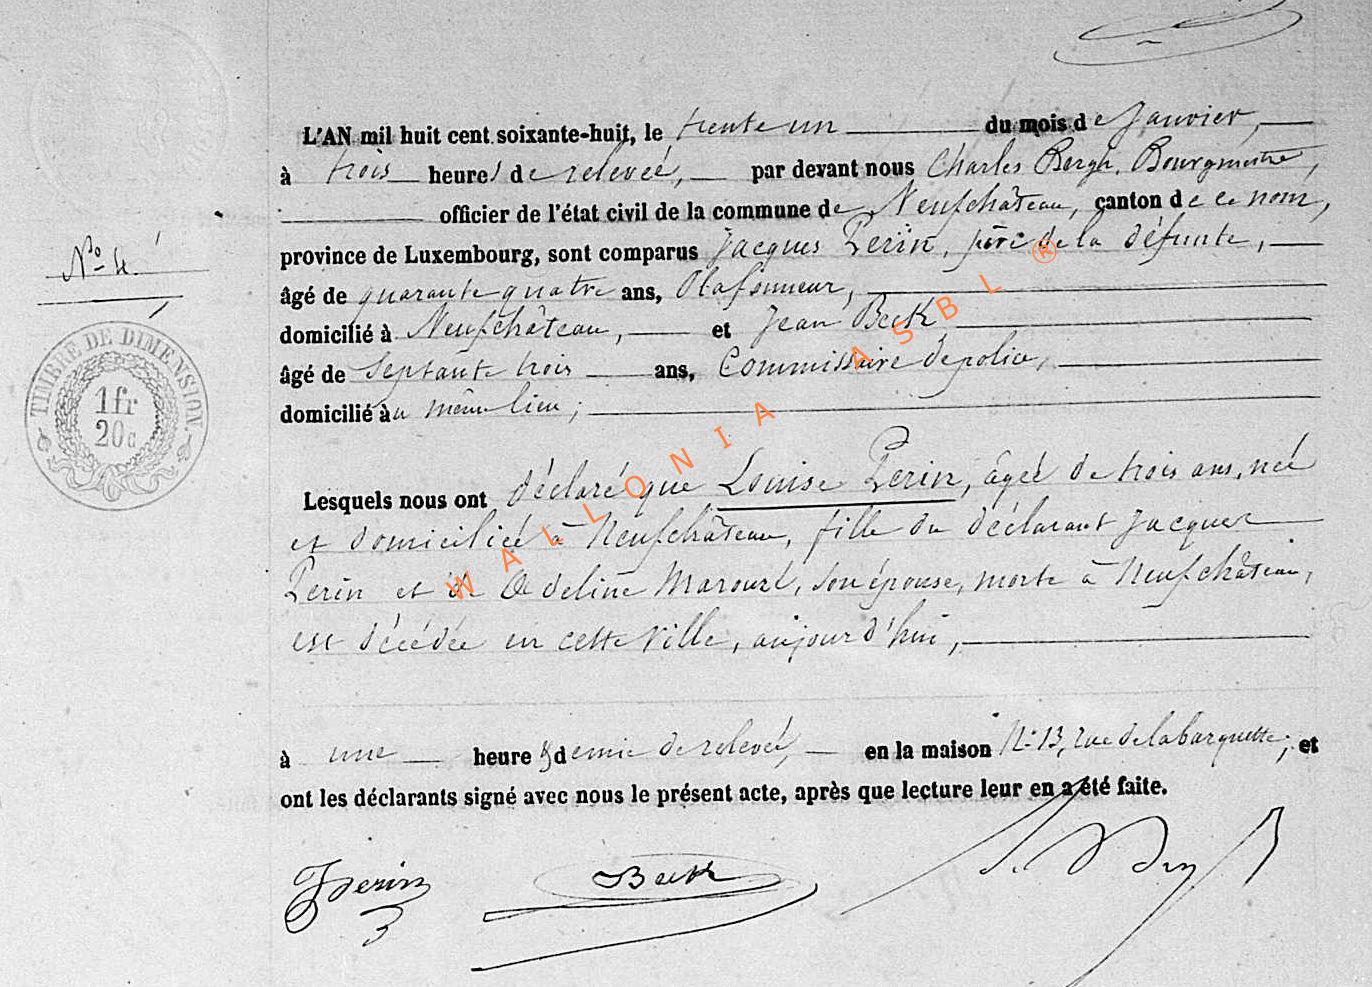 L'AN mil huit cent soixante-huit, le trente un du mois de Janvier,
à trois heures de relevée, par devant nous Charles Bergh, Bourgmestre,
officier de l'état civil de la commune de Neufchâteau, canton de ce nom,
N° 4.
province de Luxembourg, sont comparus Jacques Perin, père de la défunte,
âgé de quarante quatre ans, Plafonneur,
domicilié à Neufchâteau, et Jean Beck
âgé de Septante trois ans, Commissaire de police,
domicilié au même lieu;
TIMBRE DE DIMENSION
1fr
20c
Lesquels nous ont déclaré que Louise Perin, âgée de trois ans, née
et domiciliée à Neufchâteau, fille du déclarant Jacques
Perin et de Adeline Marouzé, son épouse, morte à Neufchâteau,
est décédée en cette ville, aujourd'hui,
à une heure & demie de relevée, en la maison N° 13, rue de la barquette; et
ont les déclarants signé avec nous le présent acte, après que lecture leur en a été faite.
JPerin
Beck
WALLONIA ASBL ®